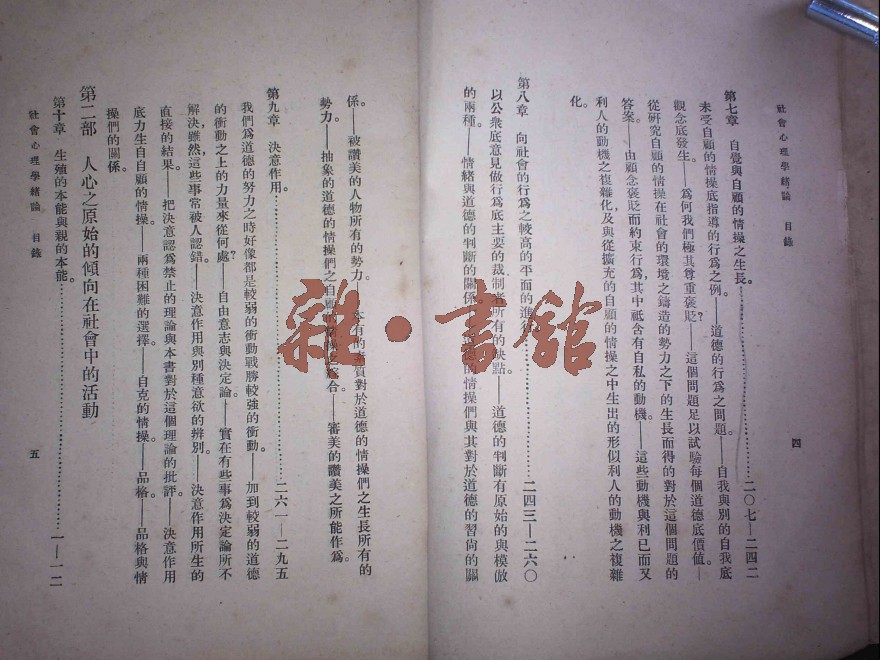 社會心理學緒論 目錄
四
第七章 自覺與自顧的情操之生長。⋯⋯二〇七—二四二
未受自顧的情操底指導的行為之例。——道德的行為之問題。——自我與別的自我底
觀念底發生。——為何我們極其尊重褒貶?——這個問題足以試驗每個道德底價值——
從研究自顧的情操在社會的環境之鑄造的勢力之下的生長而得的對於這個問題的
答案。——由顧念褒貶而約束行為,其中祇含有自私的動機。——這些動機與利已而又
利人的動機之複雜化,及與從擴充的自顧的情操之中生出的形似利人的動機之複雜
化。
第八章 向社會的行為之較高的平面的進行。⋯⋯二四三—二六〇
以公衆底意見做行為底主要的裁制者所有的缺點。——道德的判斷有原始的與模倣
的兩種。——情緒與道德的判斷的關係。——道德的情操們與其對於道德的習尙的關
係。——被讚美的人物所有的勢力。——本有的素質對於道德的情操們之生長所有的
勢力。——抽象的道德的情操們之自顧 合。——審美的讚美之所能作為。
第九章 決意作用。⋯⋯二六一—二九五
我們為道德的努力之時好像都是較弱的衝動戰勝較強的衝動。——加到較弱的道德
的衝動之上的力量來從何處?——自由意志與決定論。——實在有些事為決定論所不
解決,雖然這些事常被人認錯。——決意作用與別種意欲的辨別。——決意作用所生的
直接的結果。——把決意認為禁止的理論與本書對於這個理論的批評。——決意作用
底力生自自顧的情操。——兩種困難的選擇。——自克的情操。——品格。——品格與情
操們的關係。
第二部 人心之原始的傾向在社會中的活動
第十章 生殖的本能與親的本能。⋯⋯一—一二
社會心理學緒論 目錄
五
雜·書館